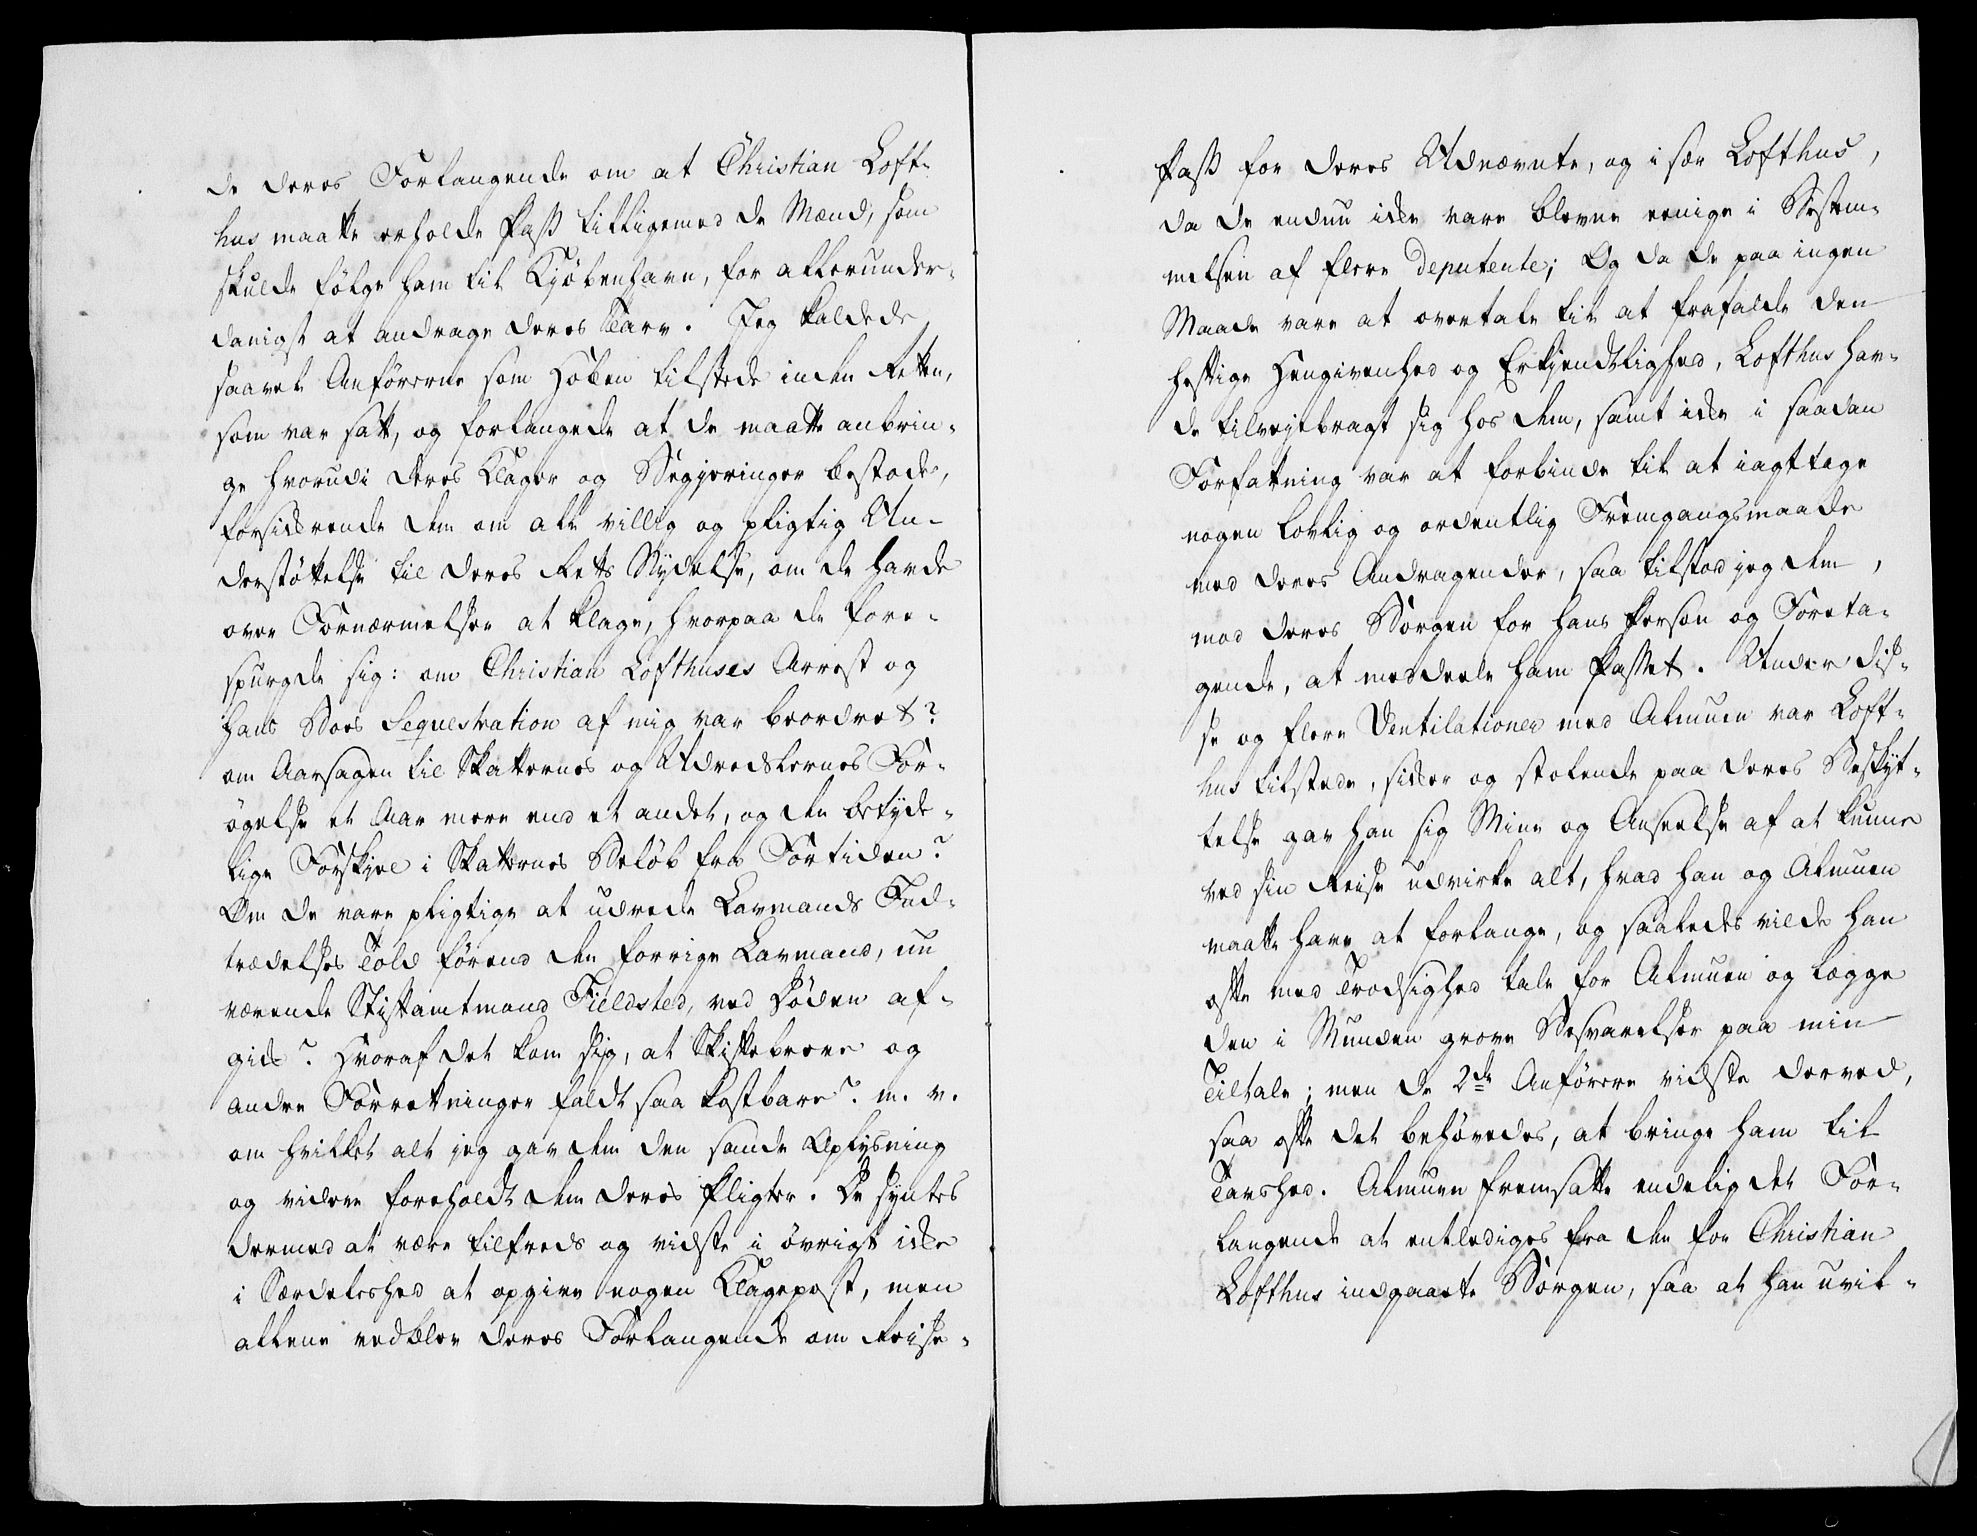 de deres Forlangende om at Christian Loft-
hus maatte erholde Pass tilligemed de Mænd, som
skulde følge ham til Kjøbenhavn, for allerunder-
danigst at andrage deres Tarv. Jeg kaldede
saavel Anførerne som Hoben tilstede inden Retten,
som var satt, og forlangede at de maatte anbrin-
ge hvorudi deres Klager og Begjeringer bestode,
forsickrende dem om all villig og pligtig Un-
derstøttelse til deres Retts Nydelse, om de havde
over Fornærmelser at klage, hvorpaa de fore-
spurgde sig: om Christian Lofthuses Arrest og
hans Boes Sequestration af mig var beordret?
om Aarsagen til Skatternes og Udredslernes For-
øgelse et Aar mere end et andet, og den betyde-
lige Forskjel i Skatternes Beløb fra Fortiden?
Om de vare pligtige at udrede Lavmands Ind-
trædelses Told førend den forrige Lavmand, nu
værende Stiftamtmand Fieldsted, ved Døden af-
gick? Hvoraf det kom sig, at Skiftebreve og
andre Forretninger faldt saa kostbare? m. v.
om hvilket alt jeg gav dem den sande Oplysning
og videre foreholdt dem deres Pligter. De syntes
dermed at være tilfreds og vidste i øvrigt icke
i Særdeleshed at opgive nogen Klagepost, men
allene vedblev deres Forlangende om Reise-
Pass for deres Udnævnte, og i sær Lofthus,
da de endnu icke vare blevne eenige i Bestem-
melsen af flere deputerte; Og da de paa ingen
Maade vare at overtale til at frafalde den
heftige Hengivenhed og Erkjendtlighed, Lofthus hav-
de tilvejebragt sig hos dem, samt icke i saadan
Forfatning var at forbinde til at iagttage
nogen lovlig og ordentlig Fremgangsmaade
med deres Andragender, saa tilstod jeg dem,
mod deres Borgen for hans Person og Foreta-
gende, at meddeele ham Passet. Under dis-
se og flere Ventilationer med Almuen var Loft-
hus tilstede, sicker og stolende paa deres Beskyt-
telse gav han sig Mine og Anseelse af at kunne
ved sin Reise udvirke alt, hvad han og Almuen
maatte have at forlange, og saaledes vilde han
ofte med Trodsighed tale for Almuen og lægge
den i Munden grove Besvarelser paa min
Tiltale; men de 2de Anførere vidste derved,
saa ofte det behøvedes, at bringe ham til
Taushed. Almuen fremsatte endelig det For-
langende at entlediges fra den for Christian
Lofthus indgaaete Borgen, saa at han uvil-